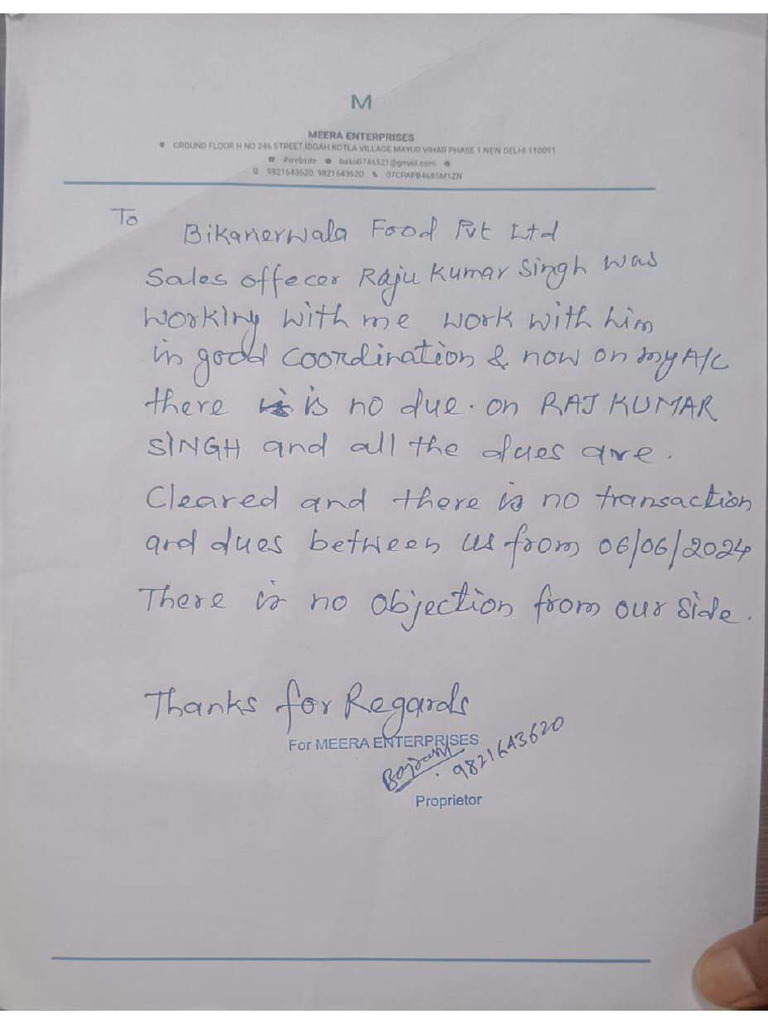 M
MEERA ENTERPRISES
GROUND FLOOR H NO 246 STREET IDGAH KOTLA VILLAGE MAYUR VIHAR PHASE 1 NEW DELHI 110091
#website baku0746521@gmail.com
9821643620 9821643620 07CPAPB4685M1ZN
To
Bikanerwala Food Pvt Ltd
Sales offecer Raju Kumar Singh was
working with me work with him
in good coordination & now on my A/C
there is is no due. on RAJ KUMAR
SINGH and all the dues are.
Cleared and there is no transaction
and dues between us from 06/06/2024
There is no objection from our side.
Thanks for Regards
For MEERA ENTERPRISES
9821643620
Proprietor